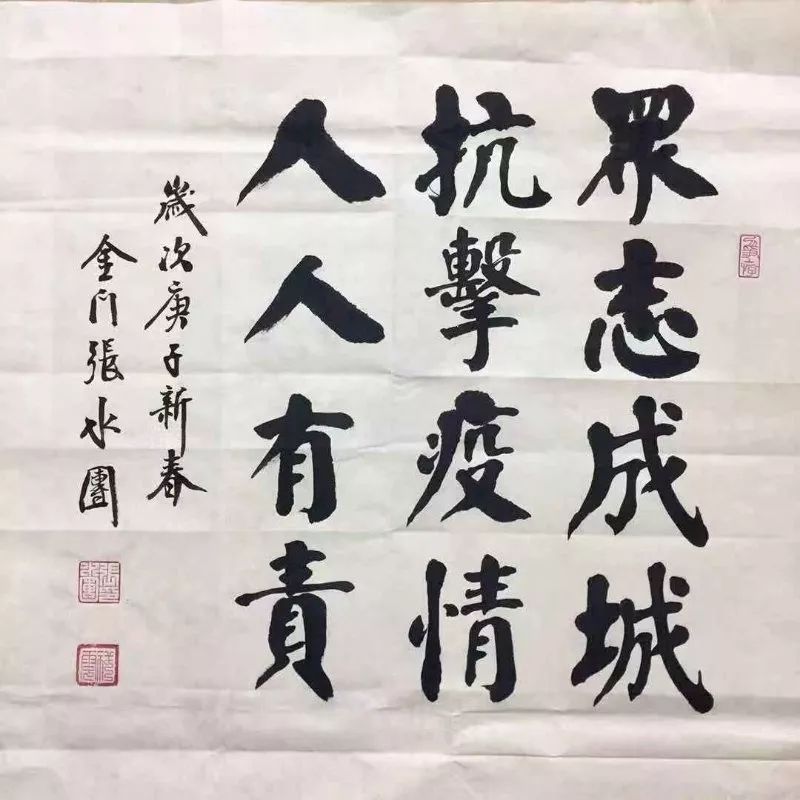 眾志成城
抗擊疫情
人人有責
歲次庚子新春
金門張水團